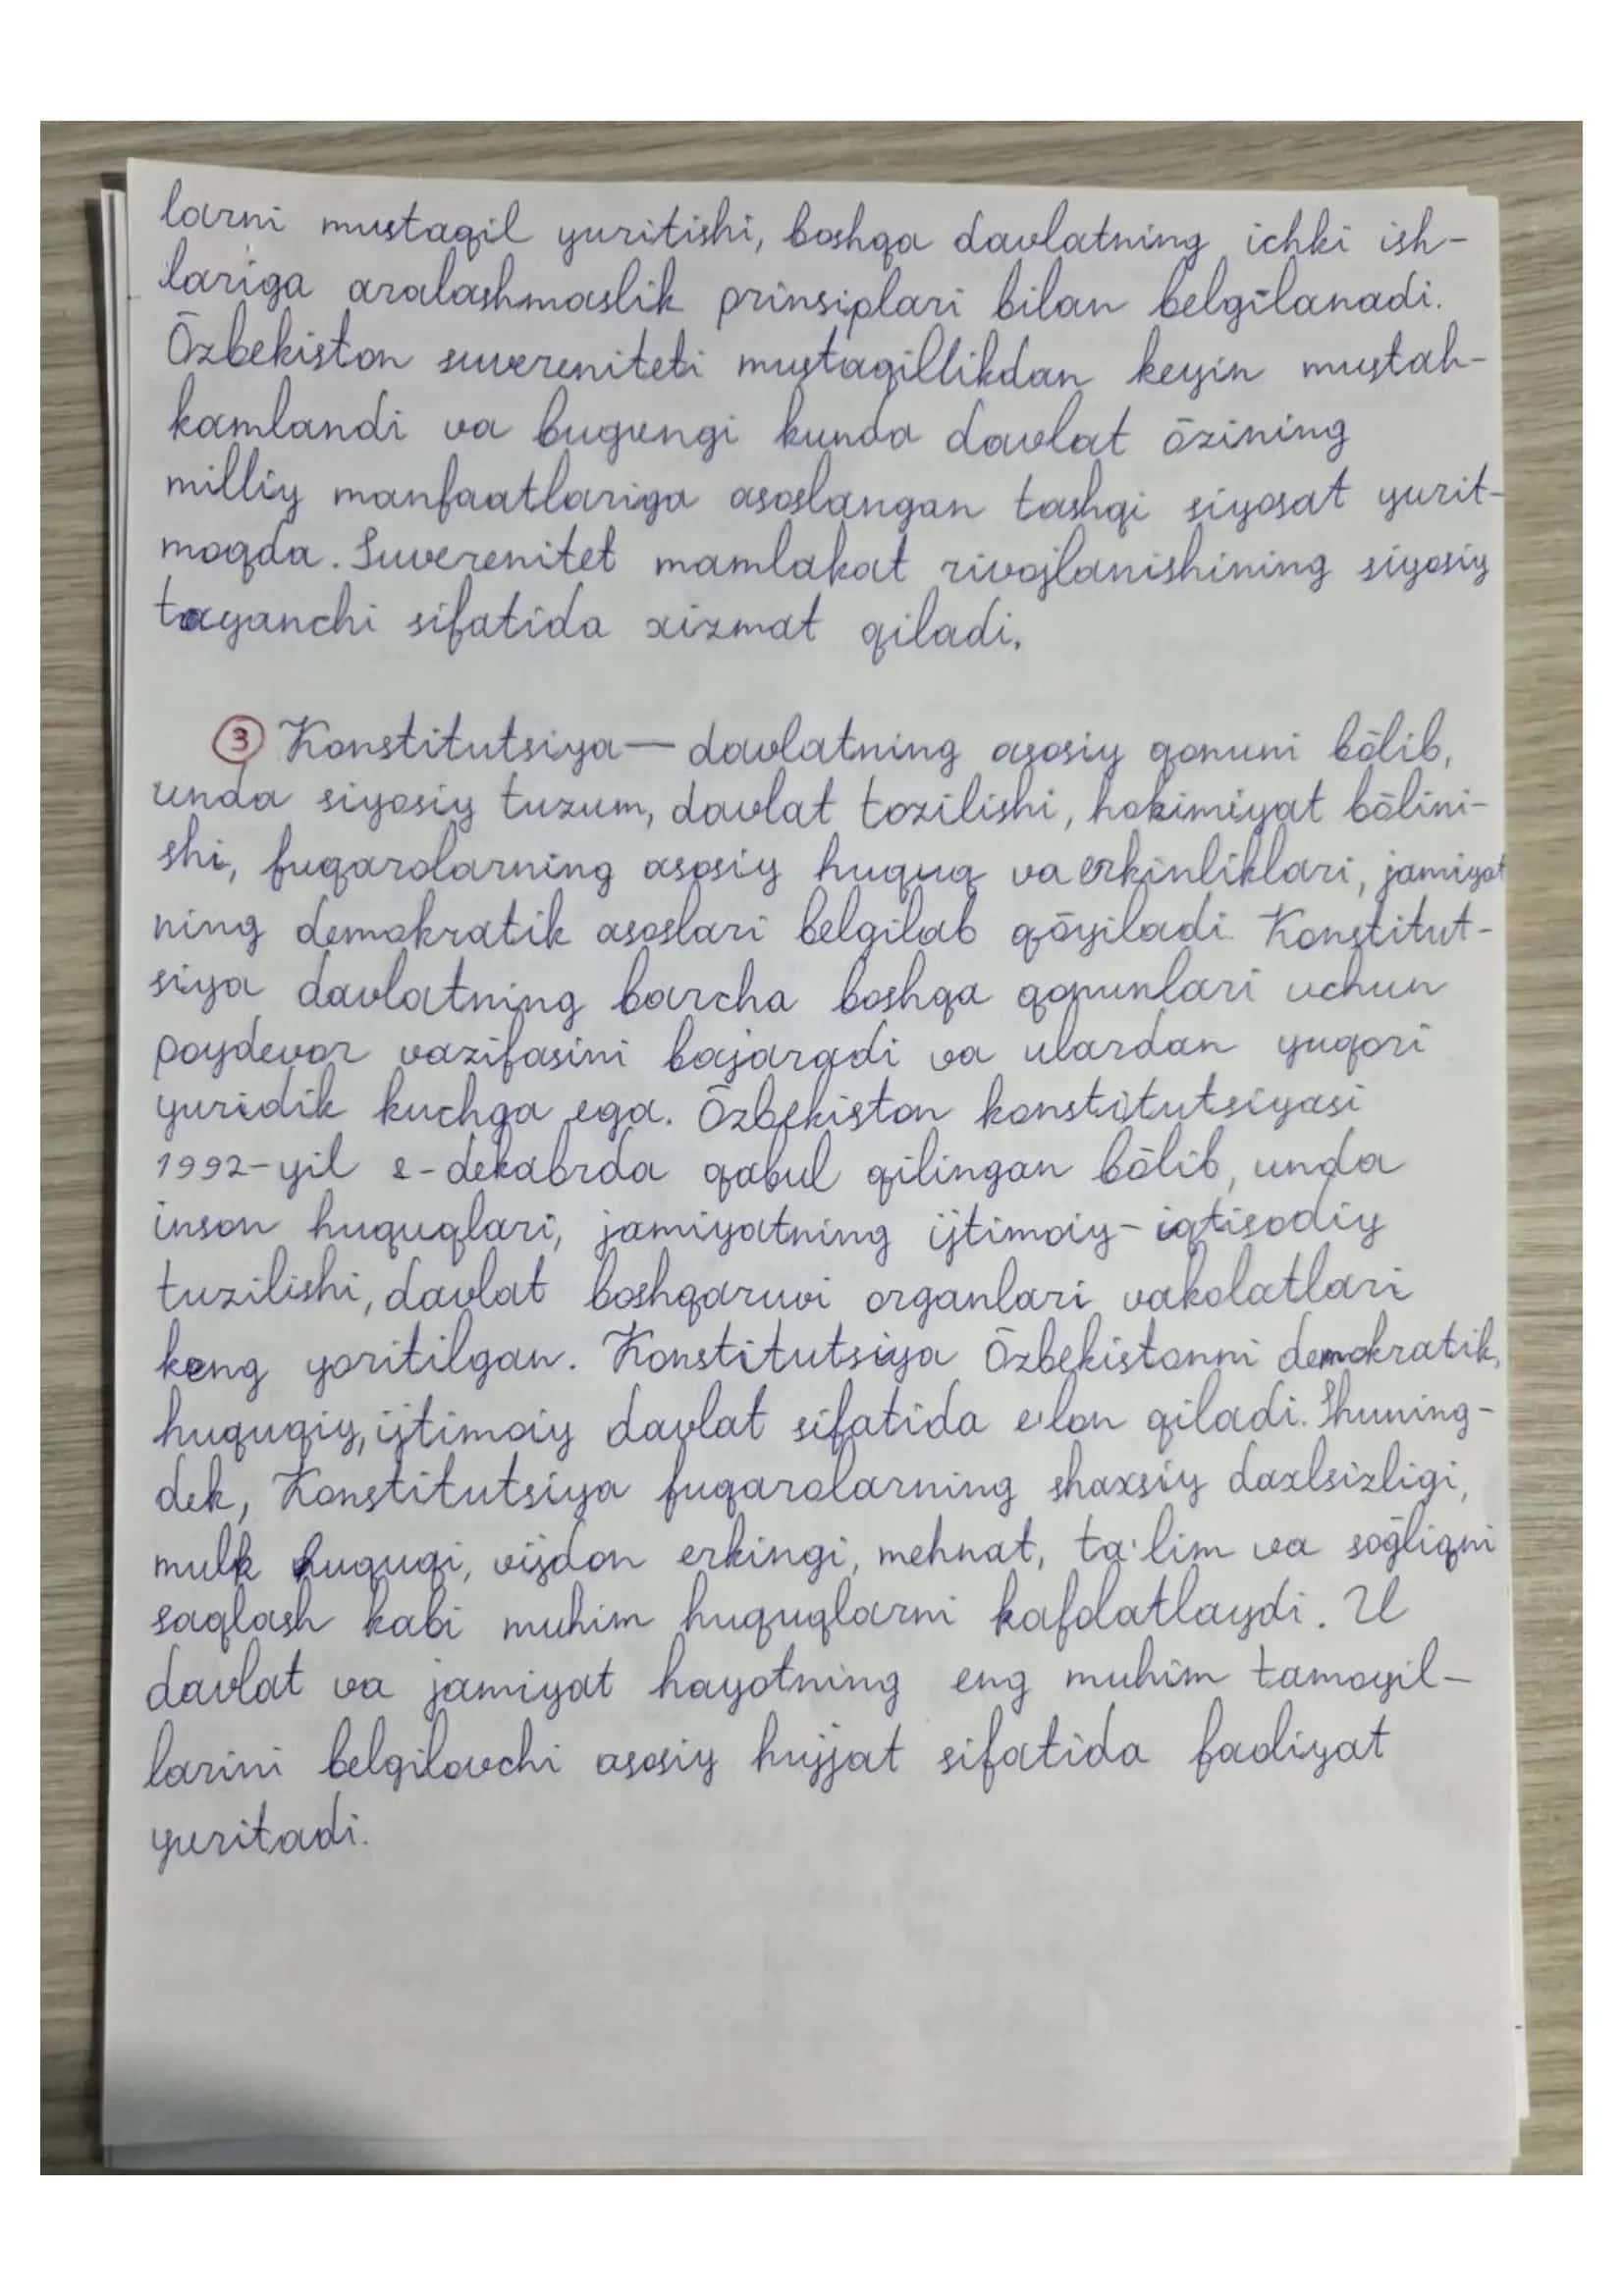 larni mustaqil yuritishi, boshqa davlatning ichki ish-
lariga aralashmaslik prinsiplari bilan belgilanadi.
Ōzbekiston suvereniteti mustaqillikdan keyin mustah-
kamlandi va bugungi kunda davlat ōzining
milliy manfaatlariga asoslangan tashqi siyosat yurit-
moqda. Suverenitet mamlakat rivojlanishining siyosiy
tayanchi sifatida xizmat qiladi.
③ Konstitutsiya — davlatning asosiy qonuni bōlib,
unda siyosiy tuzum, davlat tozilishi, hokimiyat bōlini-
shi, fuqarolarning asosiy huquq va erkinliklari, jamiyat
ning demokratik asoslari belgilab qōyiladi. Konstitut-
siya davlatning barcha boshqa qonunlari uchun
poydevor vazifasini bajaradi va ulardan yuqori
yuridik kuchga ega. Ōzbekiston konstitutsiyasi
1992-yil 8-dekabrda qabul qilingan bōlib, unda
inson huquqlari, jamiyatning ijtimoiy-iqtisodiy
tuzilishi, davlat boshqaruvi organlari vakolatlari
keng yoritilgan. Konstitutsiya Ōzbekistonni demokratik,
huquqiy, ijtimoiy davlat sifatida e'lon qiladi. Shuning-
dek, Konstitutsiya fuqarolarning shaxsiy daxlsizligi,
mulk huquqi, vijdon erkingi, mehnat, ta'lim va sōgliqni
saqlash kabi muhim huquqlarni kafolatlaydi. U
davlat va jamiyat hayotning eng muhim tamoyil-
larini belgilovchi asosiy hujjat sifatida faoliyat
yuritadi.